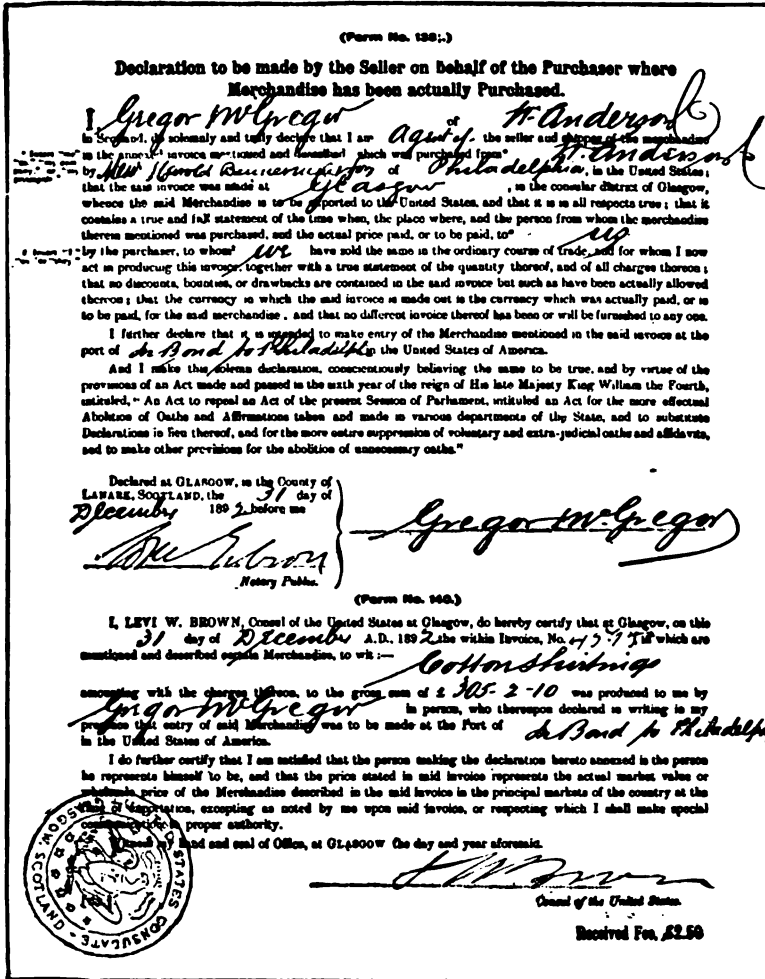 (Form No. 138.)
Declaration to be made by the Seller on Behalf of the Purchaser where
Merchandise has been actually Purchased.
I, Gregor McGregor of D. Anderson
in Scotland, do solemnly and truly declare that I am Agent of the seller and shipper of the merchandise
in the annexed invoice mentioned and described which was purchased from D. Anderson
by Mess Harold of Philadelphia, in the United States;
that the said invoice was made at Glasgow, in the consular district of Glasgow,
whence the said Merchandise is to be exported to the United States, and that it is in all respects true; that it
contains a true and full statement of the time when, the place where, and the person from whom the merchandise
therein mentioned was purchased, and the actual price paid, or to be paid, to us
by the purchaser, to whom we have sold the same in the ordinary course of trade, and for whom I now
act in producing this invoice, together with a true statement of the quantity thereof, and of all charges thereon;
that no discounts, bounties, or drawbacks are contained in the said invoice but such as have been actually allowed
thereon; that the currency in which the said invoice is made out is the currency which was actually paid, or is
to be paid, for the said merchandise, and that no different invoice thereof has been or will be furnished to any one.
I further declare that it is intended to make entry of the Merchandise mentioned in the said invoice at the
port of In Bond to Philadelph in the United States of America.
And I make this solemn declaration, conscientiously believing the same to be true, and by virtue of the
provisions of an Act made and passed in the sixth year of the reign of His late Majesty King William the Fourth,
intituled, "An Act to repeal an Act of the present Session of Parliament, intituled an Act for the more effectual
Abolition of Oaths and Affirmations taken and made in various departments of the State, and to substitute
Declarations in lieu thereof, and for the more entire suppression of voluntary and extra-judicial oaths and affidavits,
and to make other provisions for the abolition of unnecessary oaths."
Declared at GLASGOW, in the County of
LANARK, SCOTLAND, the 31 day of
December 1892 before me
Gregor McGregor
Notary Public.
(Form No. 140.)
I, LEVI W. BROWN, Consul of the United States at Glasgow, do hereby certify that at Glasgow, on this
31 day of December A.D., 1892 the within Invoice, No. in which are
mentioned and described certain Merchandise, to wit:—
Cotton Shirtings
amounting with the charges thereon, to the gross sum of £ 305-2-10 was produced to me by
Gregor McGregor in person, who thereupon declared in writing in my
presence that entry of said Merchandise was to be made at the Port of In Bond to Philadelph
in the United States of America.
I do further certify that I am satisfied that the person making the declaration hereto annexed is the person
he represents himself to be, and that the price stated in said invoice represents the actual market value or
wholesale price of the Merchandise described in the said invoice in the principal markets of the country at the
time of exportation, excepting as noted by me upon said invoice, or respecting which I shall make special
communication to proper authority.
Witness my hand and seal of Office, at GLASGOW the day and year aforesaid.
Consul of the United States.
Received Fee, $2.50
STATES CONSULATE - GLASGOW, SCOTLAND